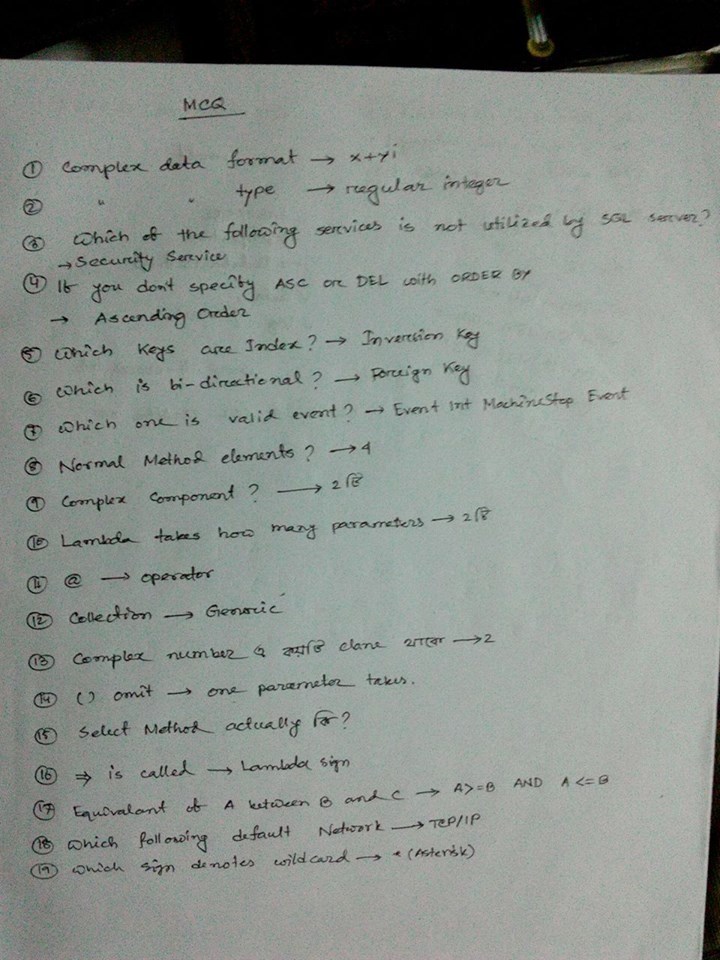 MCQ
① Complex data format → x+yi
② " " type → regular integer
③ Which of the following services is not utilized by SQL server?
→ Security Service
④ If you don't specify ASC or DEL with ORDER BY
→ Ascending Order
⑤ Which Keys are Index? → Inversion Key
⑥ Which is bi-directional? → Foreign Key
⑦ Which one is valid event? → Event Int MachineStop Event
⑧ Normal Method elements? → 4
⑨ Complex Component? → 2 টি
⑩ Lambda takes how many parameters → 2 টি
⑪ @ → operator
⑫ Collection → Generic
⑬ Complex number এ কয়টি থাকে → 2
⑭ () omit → one parameter takes.
⑮ Select Method actually কি?
⑯ ⇒ is called → Lambda sign
⑰ Equivalant of A between B and C → A>=B AND A<=B
⑱ Which following default Network → TCP/IP
⑲ Which sign denotes wildcard → * (Asterisk)